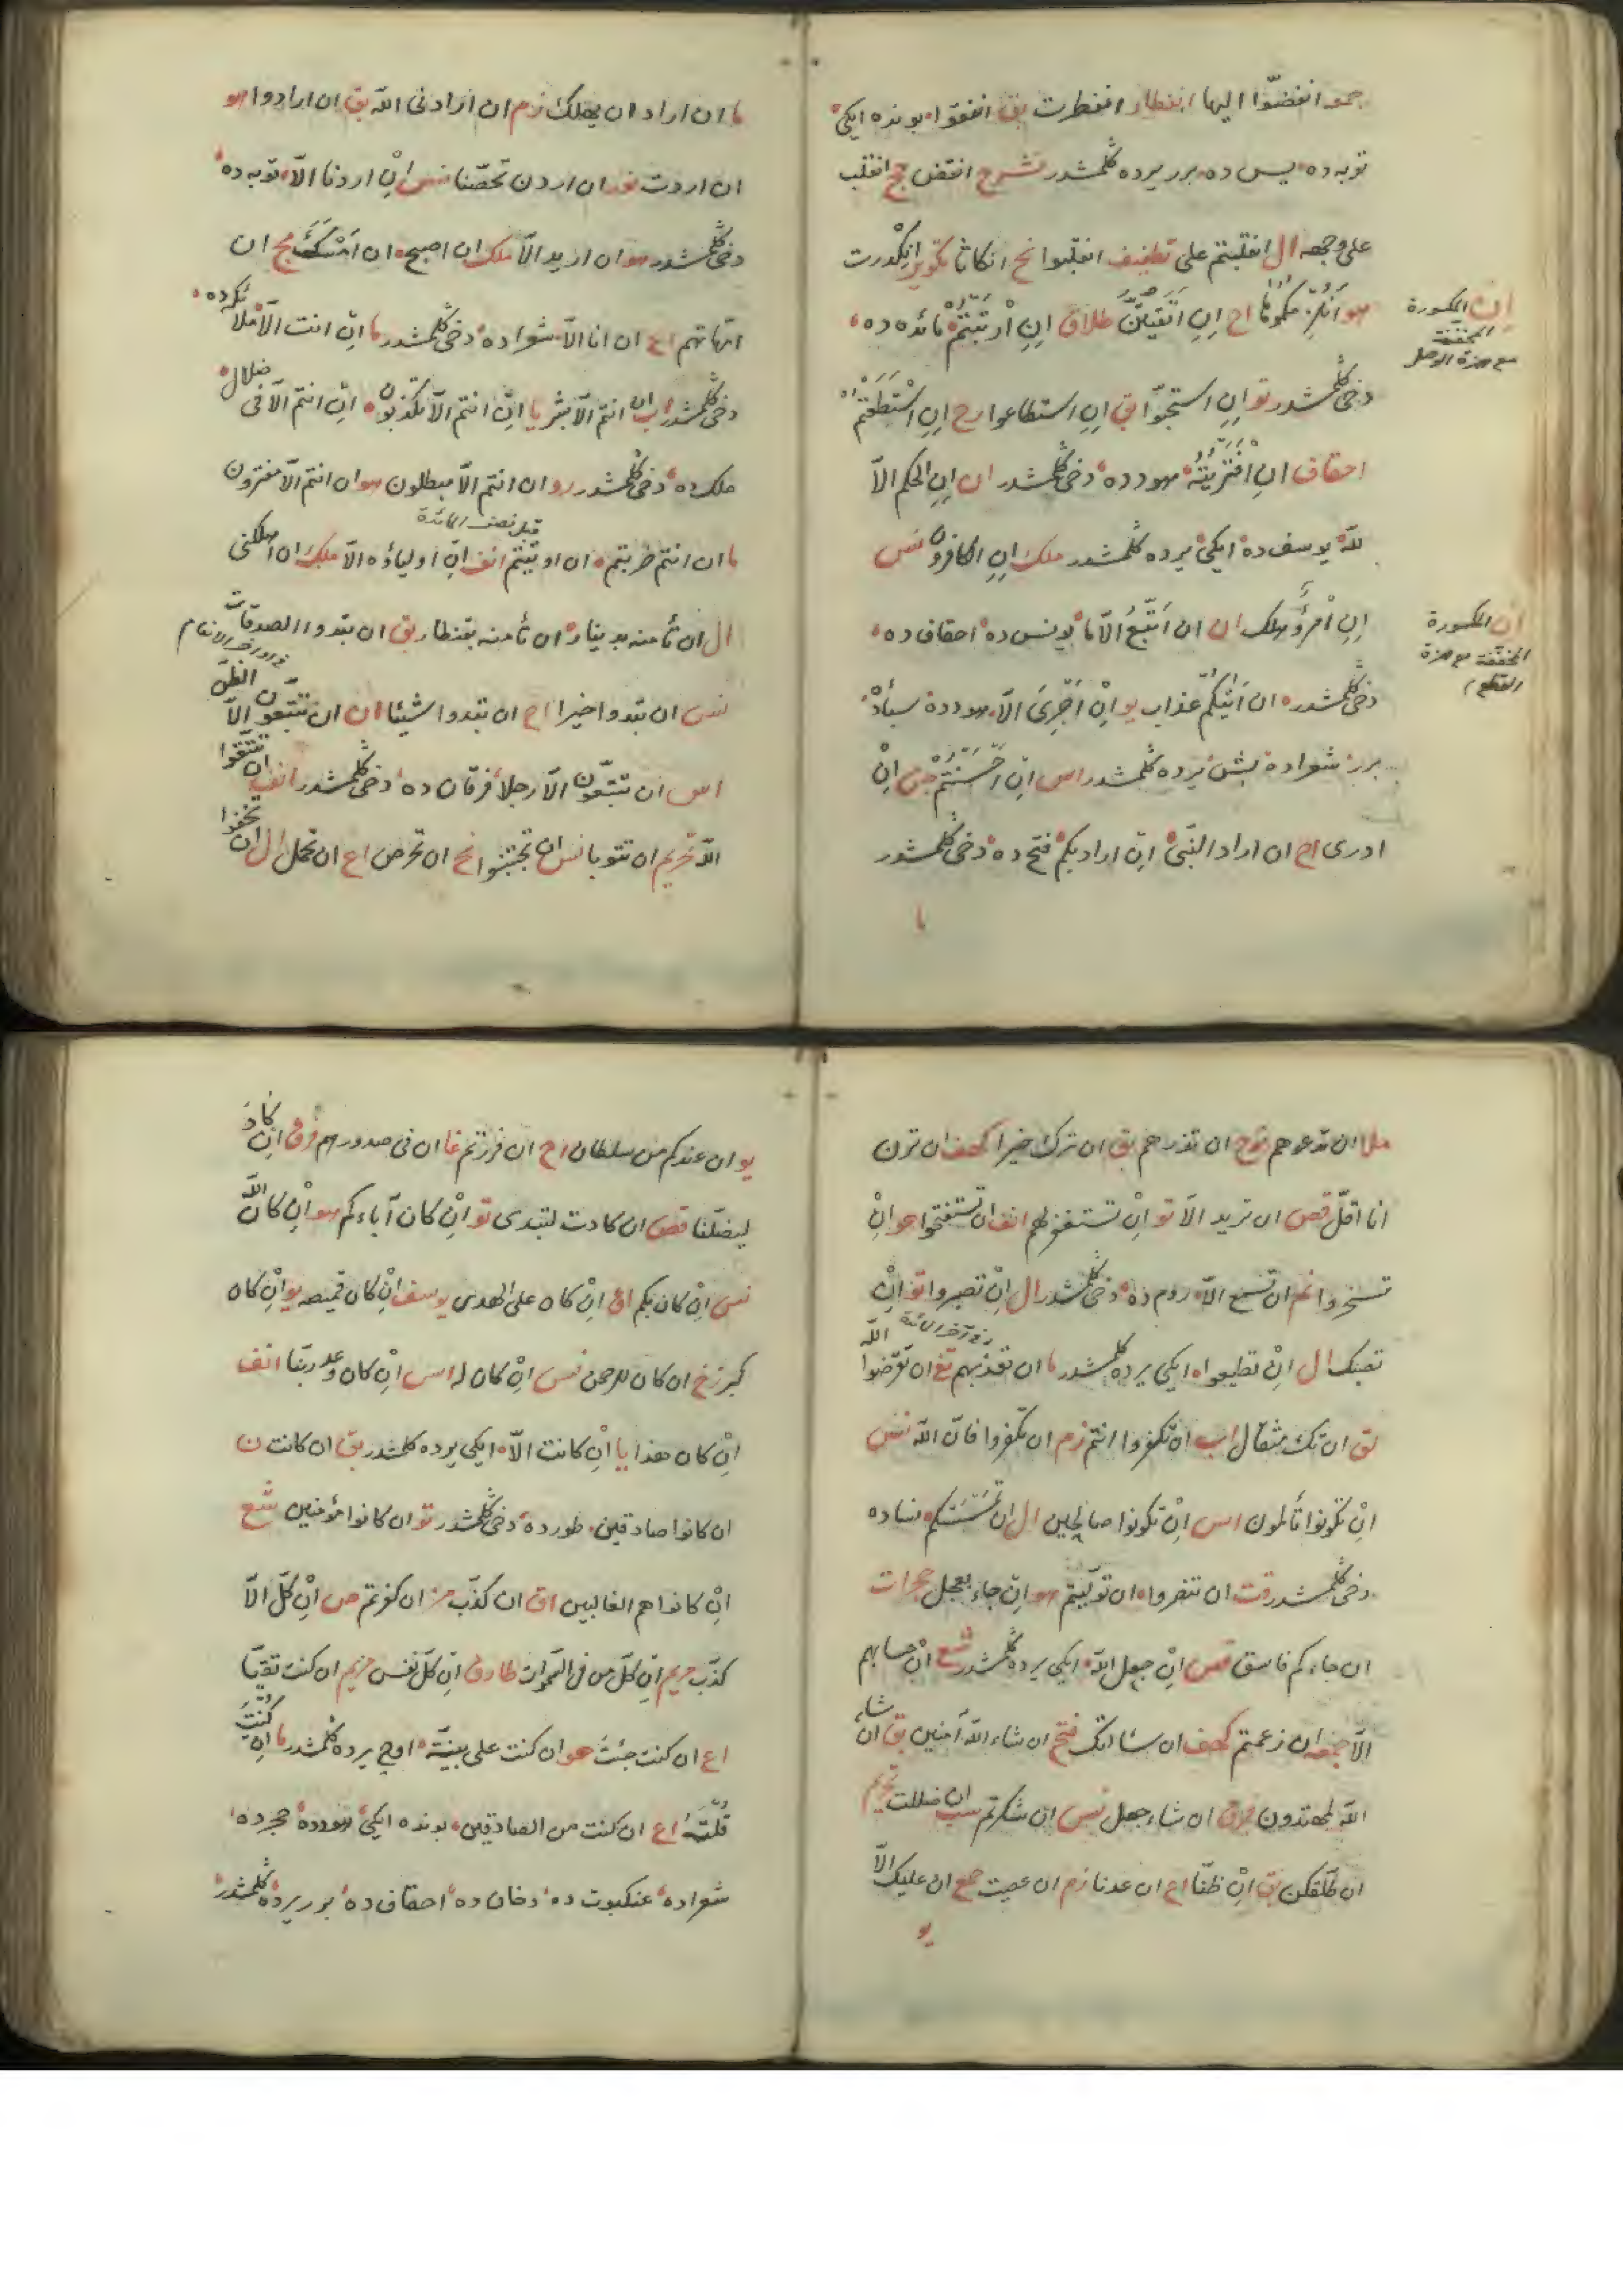 جمعه انفضّوا اليها انفطار انفطرت بق انفقوا بونده ايكى
توبه ده يس ده برر يرده كلمشدر شرح انقض حج انقلب
على وجهه ال انقلبتم على تطفيف انقلبوا نح انكاثا تكوير انكدرت
هو اح اِنِ اتّقيتنّ طلاق اِنِ ارتبتم مائده ده
دخى كلمشدر تو اِنِ استحبّوا بق اِنِ استطاعوا رح اِنِ استطعتم
احقاف انِ افتريته هود ده دخى كلمشدر ان اِنِ الحكم الاّ
للّه يوسف ده ايكى يرده كلمشدر ملك اِنِ الكافرون نس
اِنِ امرؤ هلك ان ان اَتّبع الاّ ما يونس ده احقاف ده
دخى كلمشدر ان اتيكم عذاب يو اِنْ اَجْرِىَ الاّ هود ده سبأ ده
برر شعراده بش يرده كلمشدر اس اِنْ احسنتم جن اِنْ
ادرى اح ان اراد النّبى ان اراد بكم فتح ده دخى كلمشدر
ما
إن المكسورة
المخففة
مع همزة الوصل
إن المكسورة
المخففة مع همزة
القطع
ما ان اراد ان يهلك زم ان ارادنى اللّه بق ان ارادوا هو
ان اردت نور ان اردن تحصّنا نس اِنْ اردنا الاّ توبه ده
دخى كلمشدر هو ان اريد الاّ ملك ان اصبح ان امسك مج ان
امّهاتهم اع ان انا الاّ شعرا ده دخى كلمشدر ما اِنْ انت الاّ
دخى كلمشدر اب ان انتم الاّ بشر يا اِنْ انتم الاّ تكذبون اِنْ انتم الاّ فى ضلال
ملك ده دخى كلمشدر رو ان انتم الاّ مبطلون هو ان انتم الاّ مفترون
قبل نصف المائدة
ما ان انتم ضربتم ان اوتيتم انف اِنْ اولياؤه الاّ ملك ان اهلكنى
ال ان تأمنه بدينار ان تأمنه بقنطار بق ان تبدوا الصدقات
نس ان تبدوا خيرا اح ان تبدوا شيئا ان ان تتبعون الاّ الظن
اس ان تتبعون الاّ رجلا فرقان ده دخى كلمشدر انف ان تتقوا
اللّه تحريم ان تتوبا نس ان تجتنبوا نح ان تحرص اع ان تحمل ال ان تخفوا
ملا ان تدعوهم نوح ان تذرهم بق ان ترك خيرا كهف ان ترن
انا اقلّ قص ان تريد الاّ تو اِنْ تستغفر لهم انف ان تستفتحوا هو اِنْ
تسخروا نم ان تسمع الاّ روم ده دخى كلمشدر ال اِنْ تصبروا تو اِنْ
تصبك ال اِنْ تطيعوا ايكى يرده كلمشدر ما ان تعذبهم تغ ان تقرضوا اللّه
لق ان تك مثقال اب ان تكفروا انتم زم ان تكفروا فانّ اللّه نس
اِنْ تكونوا تألمون اس اِنْ تكونوا صالحين ال ان تمسسكم نساده
دخى كلمشدر قت ان تنفروا ان تولّيتم هو ان جاء بعجل حجرات
ان جاءكم فاسق قص اِنْ جعل اللّه ايكى يرده كلمشدر شع اِنْ حسابهم
الاّ جمعه ان زعمتم كهف ان سئالتك فتح ان شاء اللّه آمنين بق ان شاء
اللّه لمهتدون فرق ان شاء جعل نس ان شكرتم سب ان ضللت تحريم
ان طلّقكن بق اِنْ ظنّا اح ان عدنا زم ان عصيت جمع ان عليك الاّ
يو
يو ان عندكم من سلطان اح ان فررتم غا ان فى صدورهم فرق ان كاد
ليضلّنا قصص ان كادت لتبدى تو اِنْ كان آباءكم هو اِنْ كان اللّه
نس اِنْ كان بكم اع اِنْ كان على الهدى يوسف اِنْ كان قميصه يو اِنْ كان
كبر زخ ان كان للرحمن نس اِنْ كان له اس اِنْ كان وعد ربّنا انف
اِنْ كان هذا يا اِنْ كانت الاّ ايكى يرده كلمشدر بق ان كانت ن
ان كانوا صادقين طورده دخى كلمشدر تو ان كانوا مؤمنين شع
اِنْ كانوا هم الغالبين اق ان كذّب مز ان كفرتم ص اِنْ كلّ الاّ
كذّب مريم اِنْ كلّ من فى السّموات طارق اِنْ كلّ نفس مريم ان كنت تقيّا
اع ان كنت جئت هو ان كنت على بيّنة اوچ يرده كلمشدر ما اِنْ كنت
قلته اع ان كنت من الصادقين بونده ايكى هود ده حجرده
شعراده عنكبوت ده دخان ده احقاف ده برر يرده كلمشدر